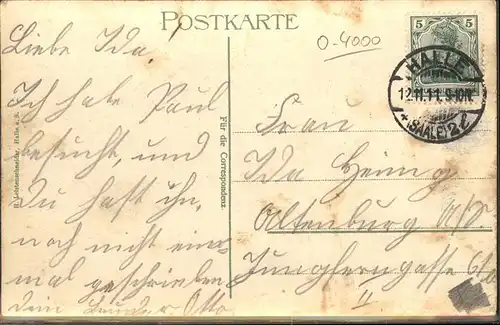 POSTKARTE
O-4000
5 5
HALLE
12.11.11. 9-10N.
* (SAALE) 2
Liebe Ida
Ich habe Paul
besucht, und
Du hast ihn,
noch nicht ein-
mal geschrieben
dein Bruder Otto
Für die Correspondenz.
Halle a. S.
Frau
Ida Heinig
Altenburg S/A.
Jungferngasse 6
II